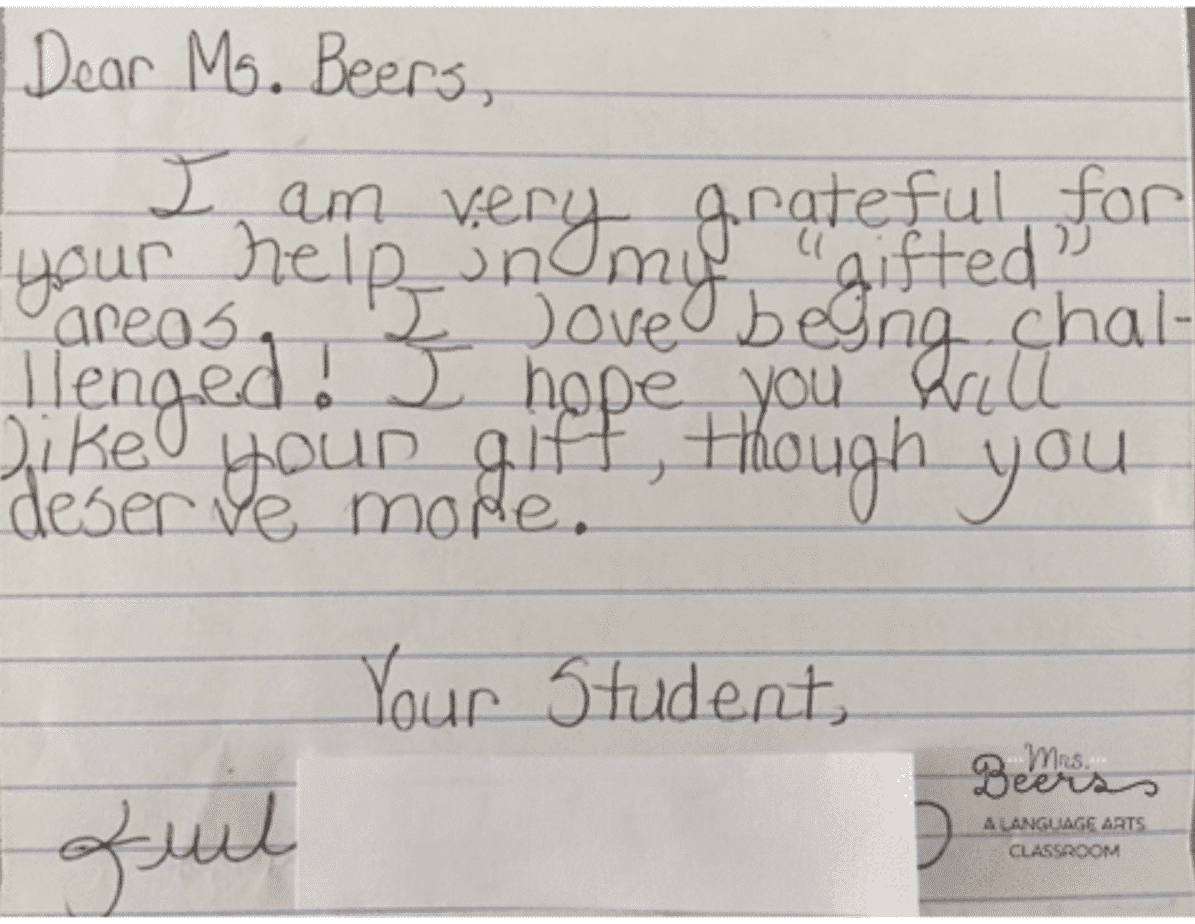 Dear Ms. Beers,
I am very grateful for
your help in my "gifted"
areas. I love being chal-
llenged! I hope you will
like your gift, though you
deserve more.
Your Student,
Mrs.
Beers
A LANGUAGE ARTS
CLASSROOM